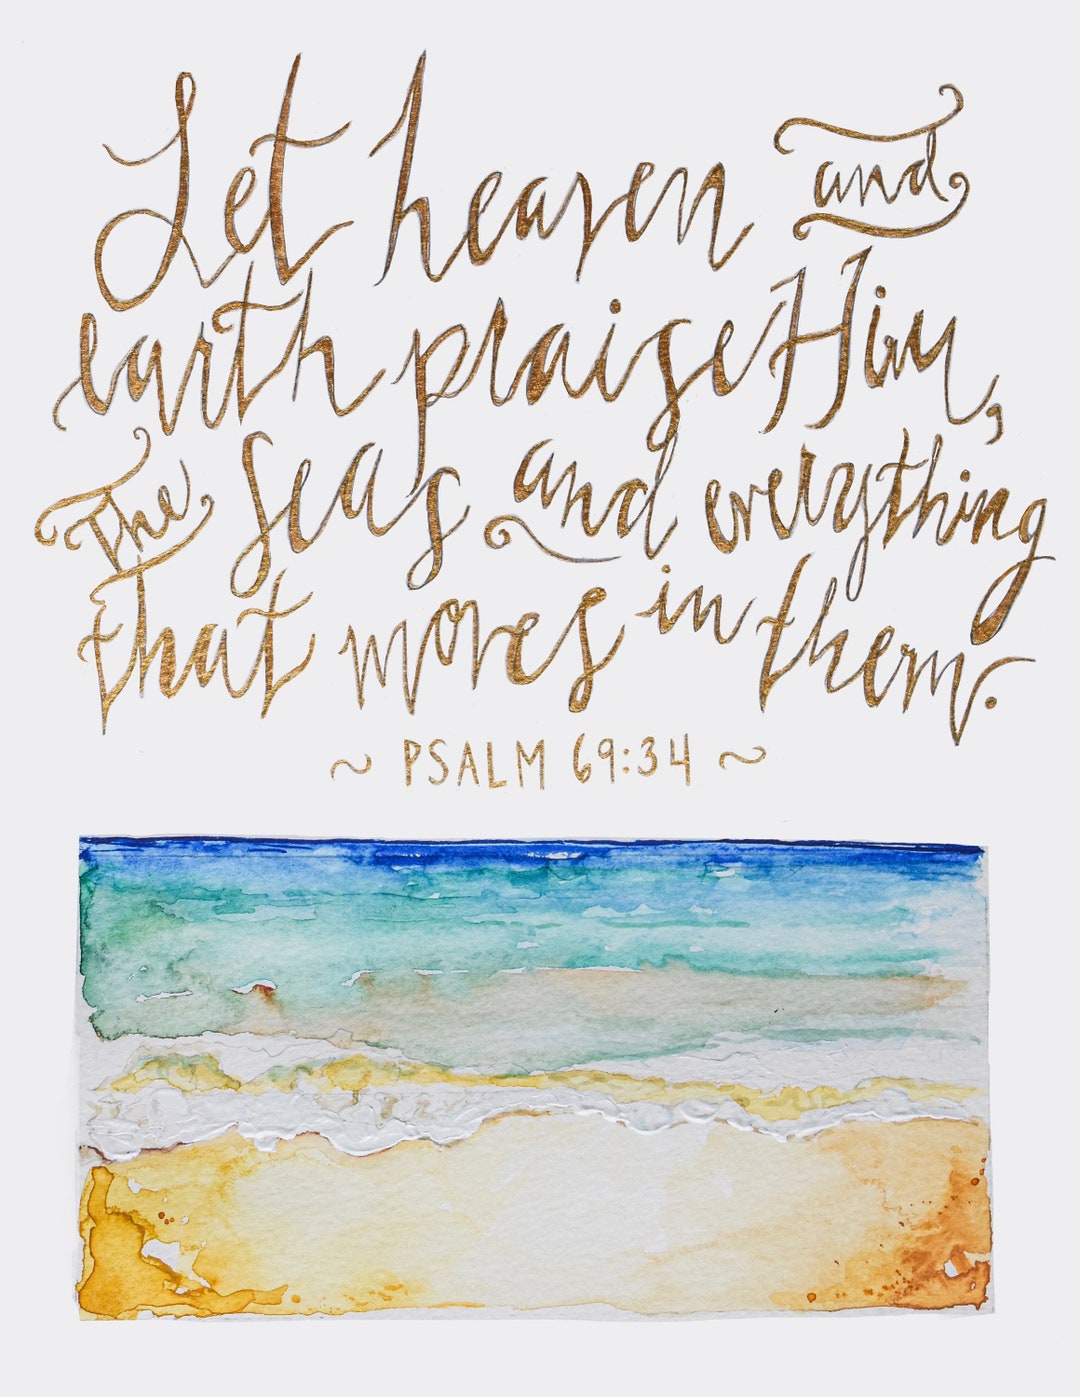 Let heaven and
earth praise Him,
The seas and everything
that moves in them.
~ PSALM 69:34 ~